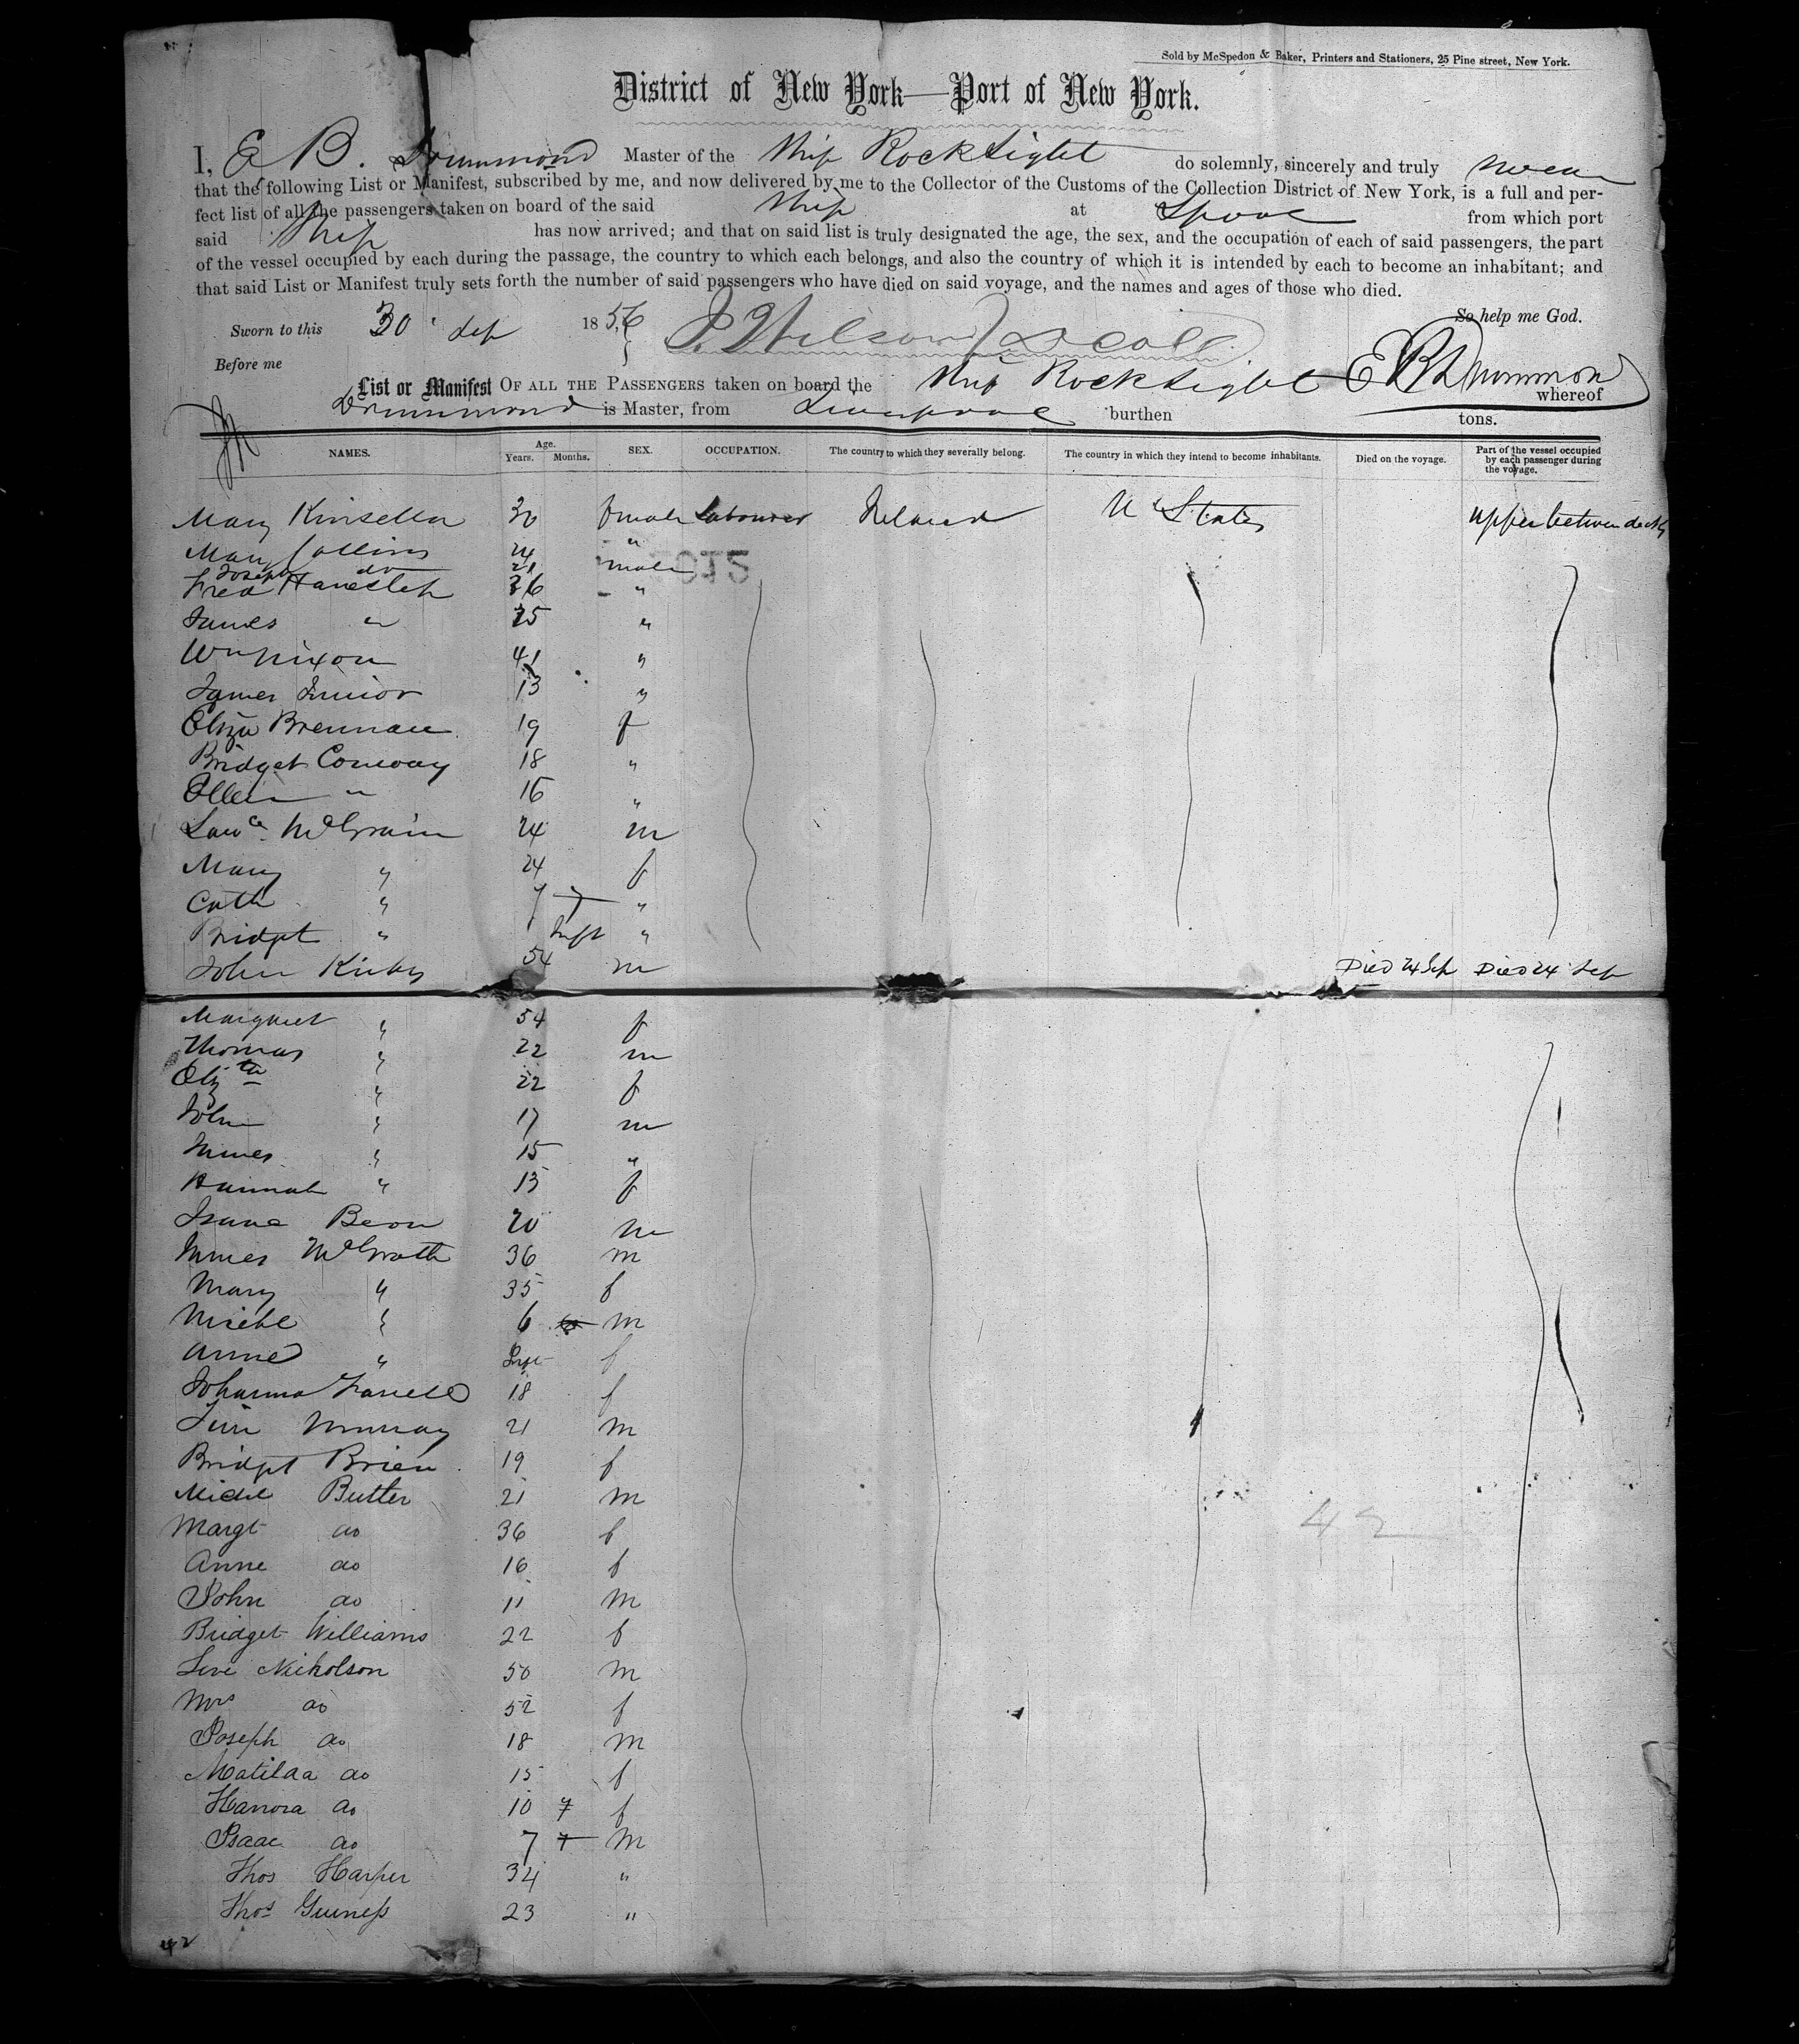 Sold by McSpedon & Baker, Printers and Stationers, 25 Pine street, New York.
District of New York—Port of New York.
I, E B. Drummond Master of the Ship Rock Light do solemnly, sincerely and truly swear
that the following List or Manifest, subscribed by me, and now delivered by me to the Collector of the Customs of the Collection District of New York, is a full and per-
fect list of all the passengers taken on board of the said Ship at Lpool from which port
said Ship has now arrived; and that on said list is truly designated the age, the sex, and the occupation of each of said passengers, the part
of the vessel occupied by each during the passage, the country to which each belongs, and also the country of which it is intended by each to become an inhabitant; and
that said List or Manifest truly sets forth the number of said passengers who have died on said voyage, and the names and ages of those who died.
So help me God.
Sworn to this 30 Sep 1856
Before me E B Drummond
List or Manifest OF ALL THE PASSENGERS taken on board the Ship Rock Light whereof
Drummond is Master, from Liverpool burthen tons.
NAMES. Age. Years. Months. SEX. OCCUPATION. The country to which they severally belong. The country in which they intend to become inhabitants. Died on the voyage. Part of the vessel occupied by each passenger during the voyage.
Mary Kinsella 30 female Labourer Ireland U States upper between decks
Mary Collins 24 "
Joseph do 21 male
Fred 36 "
James " 25 "
Wm Nixon 41 "
James Junior 13 "
Eliza Brennan 19 f
Bridget Conway 18 "
Ellen " 16 "
Lawce McGrain 24 m
Mary " 24 f
Cath " 7 "
Bridget " Inft "
John Kirby 54 m Died 24 Sep Died 24 Sep
Margaret " 54 f
Thomas " 22 m
Elizth " 22 f
John " 17 m
James " 15 "
Hannah " 13 f
Isaac Beon 20 m
James McGrath 36 m
Mary " 35 f
Michl " 6 m
Anne " Inft f
Johanna Farrell 18 f
Tim Murray 21 m
Bridget Brien 19 f
Michl Butler 21 m
Margt do 36 f
Anne do 16 f
John do 11 m
Bridget Williams 22 f
Levi Nicholson 50 m
Mrs do 52 f
Joseph do 18 m
Matilda do 15 f
Hanora do 10 7 f
Isaac do 7 7 m
Thos Harper 34 "
Thos Guiness 23 "
42
42